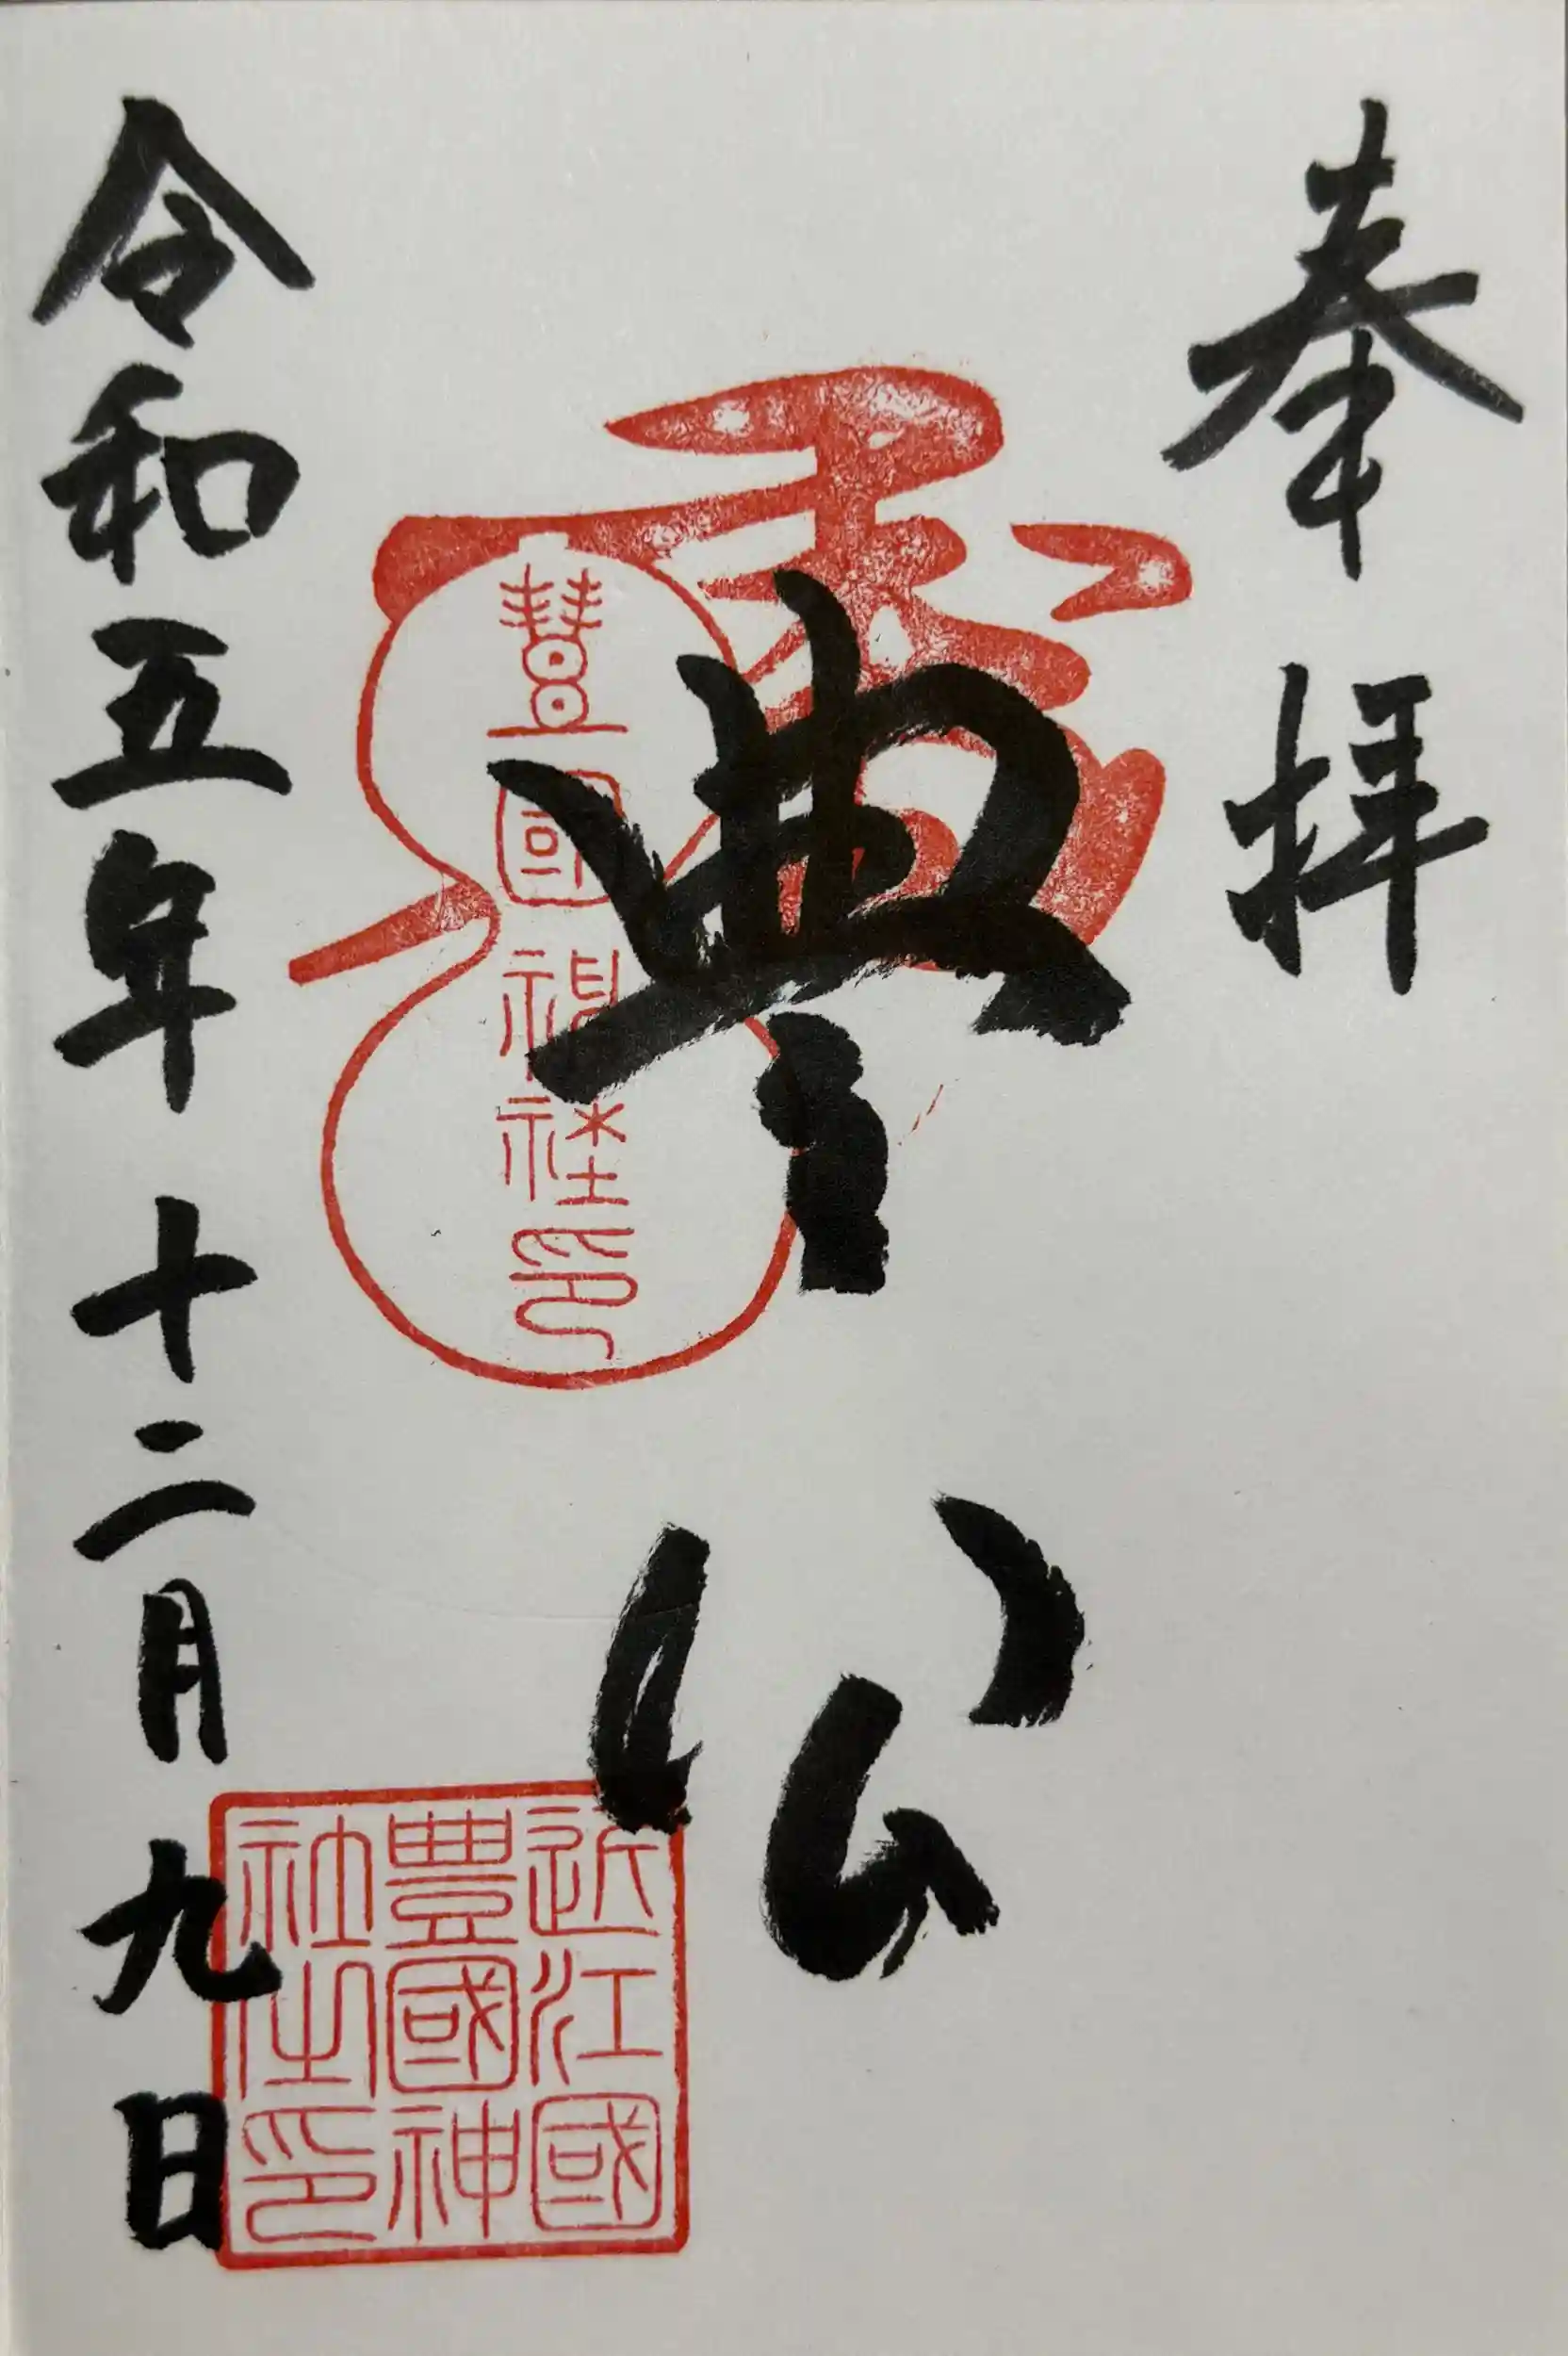 奉拝
豊公
令和五年十二月九日
豐國神社印
近江國
豊國神
社之印